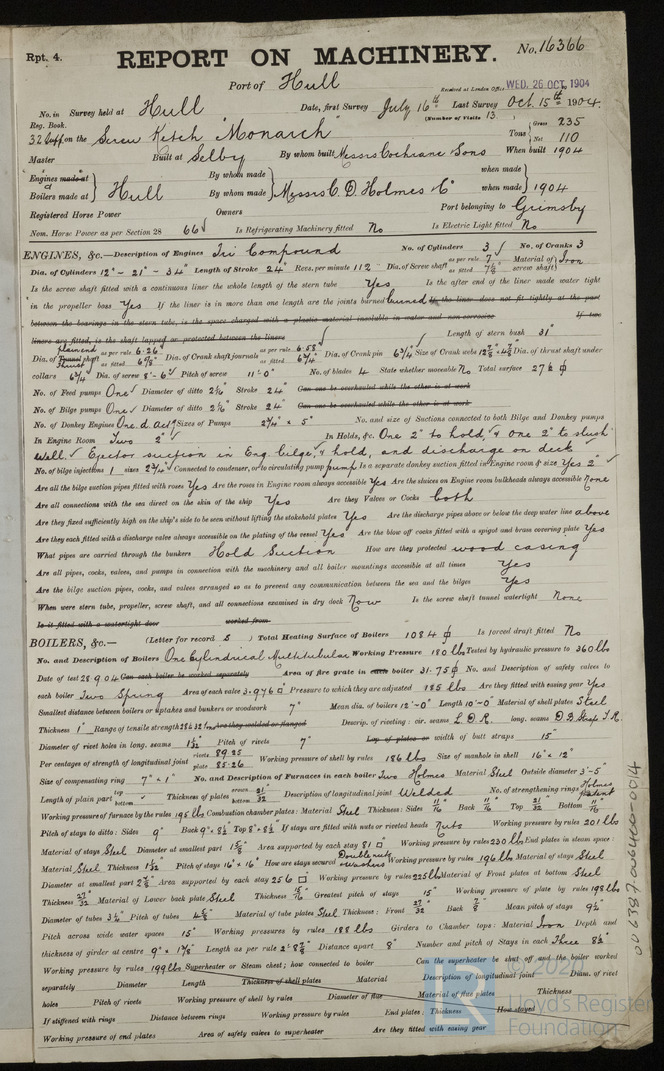 Rpt. 4.
REPORT ON MACHINERY.
No. 16366
Port of Hull
Received at London Office WED. 26 OCT. 1904
No. in Survey held at Hull Date, first Survey July 16th Last Survey Oct. 15th 1904.
Reg. Book. (Number of Visits 13
32 Suff on the Screw Ketch "Monarch" Tons { Gross 235
Net 110
Master Built at Selby By whom built Messrs Cochrane & Sons When built 1904
Engines made at By whom made when made
& Hull Messrs C. D. Holmes & Co 1904
Boilers made at By whom made when made
Registered Horse Power Owners Port belonging to Grimsby
Nom. Horse Power as per Section 28 66 Is Refrigerating Machinery fitted No Is Electric Light fitted No
ENGINES, &c.—Description of Engines Tri Compound No. of Cylinders 3 No. of Cranks 3
Dia. of Cylinders 12" - 21" - 34" Length of Stroke 24" Revs. per minute 112 Dia. of Screw shaft as per rule 7" as fitted 7 1/4" Material of screw shaft } Iron
Is the screw shaft fitted with a continuous liner the whole length of the stern tube Yes Is the after end of the liner made water tight
in the propeller boss Yes If the liner is in more than one length are the joints burned burned If the liner does not fit tightly at the part
between the bearings in the stern tube, is the space charged with a plastic material insoluble in water and non-corrosive If two
liners are fitted, is the shaft lapped or protected between the liners Length of stern bush 31"
Dia. of Tunnel shaft as per rule 6.26" as fitted 6 5/8" Dia. of Crank shaft journals as per rule 6.58" as fitted 6 3/4" Dia. of Crank pin 6 3/4" Size of Crank webs Dia. of thrust shaft under
collars 6 3/4" Dia. of screw 8'-6" Pitch of screw 11'-0" No. of blades 4 State whether moveable No Total surface 27 1/2 ϕ
No. of Feed pumps One Diameter of ditto 2 1/2" Stroke 24" Can one be overhauled while the other is at work
No. of Bilge pumps One Diameter of ditto 2 1/2" Stroke 24" Can one be overhauled while the other is at work
No. of Donkey Engines One d. act Sizes of Pumps 2 3/4" × 5" No. and size of Suctions connected to both Bilge and Donkey pumps
In Engine Room Two 2" In Holds, &c. One 2" to hold, & one 2" to slush
well. Ejector suction in Eng bilge & hold, and discharge on deck
No. of bilge injections 1 sizes 2 3/4" Connected to condenser, or to circulating pump pump Is a separate donkey suction fitted in Engine room & size Yes 2"
Are all the bilge suction pipes fitted with roses Yes Are the roses in Engine room always accessible Yes Are the sluices on Engine room bulkheads always accessible None
Are all connections with the sea direct on the skin of the ship Yes Are they Valves or Cocks both
Are they fixed sufficiently high on the ship's side to be seen without lifting the stokehold plates Yes Are the discharge pipes above or below the deep water line above
Are they each fitted with a discharge valve always accessible on the plating of the vessel Yes Are the blow off cocks fitted with a spigot and brass covering plate Yes
What pipes are carried through the bunkers Hold Suction How are they protected wood casing
Are all pipes, cocks, valves, and pumps in connection with the machinery and all boiler mountings accessible at all times Yes
Are the bilge suction pipes, cocks, and valves arranged so as to prevent any communication between the sea and the bilges Yes
When were stern tube, propeller, screw shaft, and all connections examined in dry dock Now Is the screw shaft tunnel watertight None
Is it fitted with a watertight door worked from
BOILERS, &c.— (Letter for record S ) Total Heating Surface of Boilers 1084 ϕ Is forced draft fitted No
No. and Description of Boilers One Cylindrical Multitubular Working Pressure 180 lbs Tested by hydraulic pressure to 360 lbs
Date of test 28 9 04 Can each boiler be worked separately Area of fire grate in each boiler 31.75 ϕ No. and Description of safety valves to
each boiler Two Spring Area of each valve 3.976 □" Pressure to which they are adjusted 185 lbs Are they fitted with easing gear Yes
Smallest distance between boilers or uptakes and bunkers or woodwork 7" Mean dia. of boilers 12'-0" Length 10'-0" Material of shell plates Steel
Thickness 1" Range of tensile strength 28 & 32 tons Are they welded or flanged Descrip. of riveting: cir. seams L. D. R. long. seams D. B. Straps T. R.
Diameter of rivet holes in long. seams 1 1/32" Pitch of rivets 7" Lap of plates or width of butt straps 15"
Per centages of strength of longitudinal joint rivets 89.25 plate 85.26 Working pressure of shell by rules 186 lbs Size of manhole in shell 16" × 12"
Size of compensating ring 7" × 1" No. and Description of Furnaces in each boiler Two Holmes Material Steel Outside diameter 3'-5"
Length of plain part top bottom Thickness of plates crown bottom 21/32" Description of longitudinal joint Welded No. of strengthening rings Holmes Patent
Working pressure of furnace by the rules 195 lbs Combustion chamber plates: Material Steel Thickness: Sides 11/16" Back 11/16" Top 21/32" Bottom 11/16"
Pitch of stays to ditto: Sides 9" Back 9" × 8 1/2" Top 8" × 8 1/2" If stays are fitted with nuts or riveted heads Nuts Working pressure by rules 201 lbs
Material of stays Steel Diameter at smallest part 1 5/8" Area supported by each stay 81 □" Working pressure by rules 230 lbs End plates in steam space:
Material Steel Thickness 1 1/32" Pitch of stays 16" × 16" How are stays secured Double nuts & washers Working pressure by rules 196 lbs Material of stays Steel
Diameter at smallest part Area supported by each stay 256 □" Working pressure by rules 225 lbs Material of Front plates at bottom Steel
Thickness 27/32" Material of Lower back plate Steel Thickness 15/16" Greatest pitch of stays 15" Working pressure of plate by rules 198 lbs
Diameter of tubes 3 1/4" Pitch of tubes 4 5/8" Material of tube plates Steel Thickness: Front 27/32" Back 7/8" Mean pitch of stays 9 1/4"
Pitch across wide water spaces 15" Working pressures by rules 188 lbs Girders to Chamber tops: Material Iron Depth and
thickness of girder at centre 9" × 1 7/8" Length as per rule 2'-8 7/8" Distance apart 8" Number and pitch of Stays in each Three 8 1/2"
Working pressure by rules 199 lbs Superheater or Steam chest; how connected to boiler Can the superheater be shut off and the boiler worked
separately Diameter Length Thickness of shell plates Material Description of longitudinal joint Diam. of rivet
holes Pitch of rivets Working pressure of shell by rules Diameter of flue Material of flue plates Thickness
If stiffened with rings Distance between rings Working pressure by rules End plates: Thickness How stayed
Working pressure of end plates Area of safety valves to superheater Are they fitted with easing gear
© 2021
Lloyd's Register
Foundation